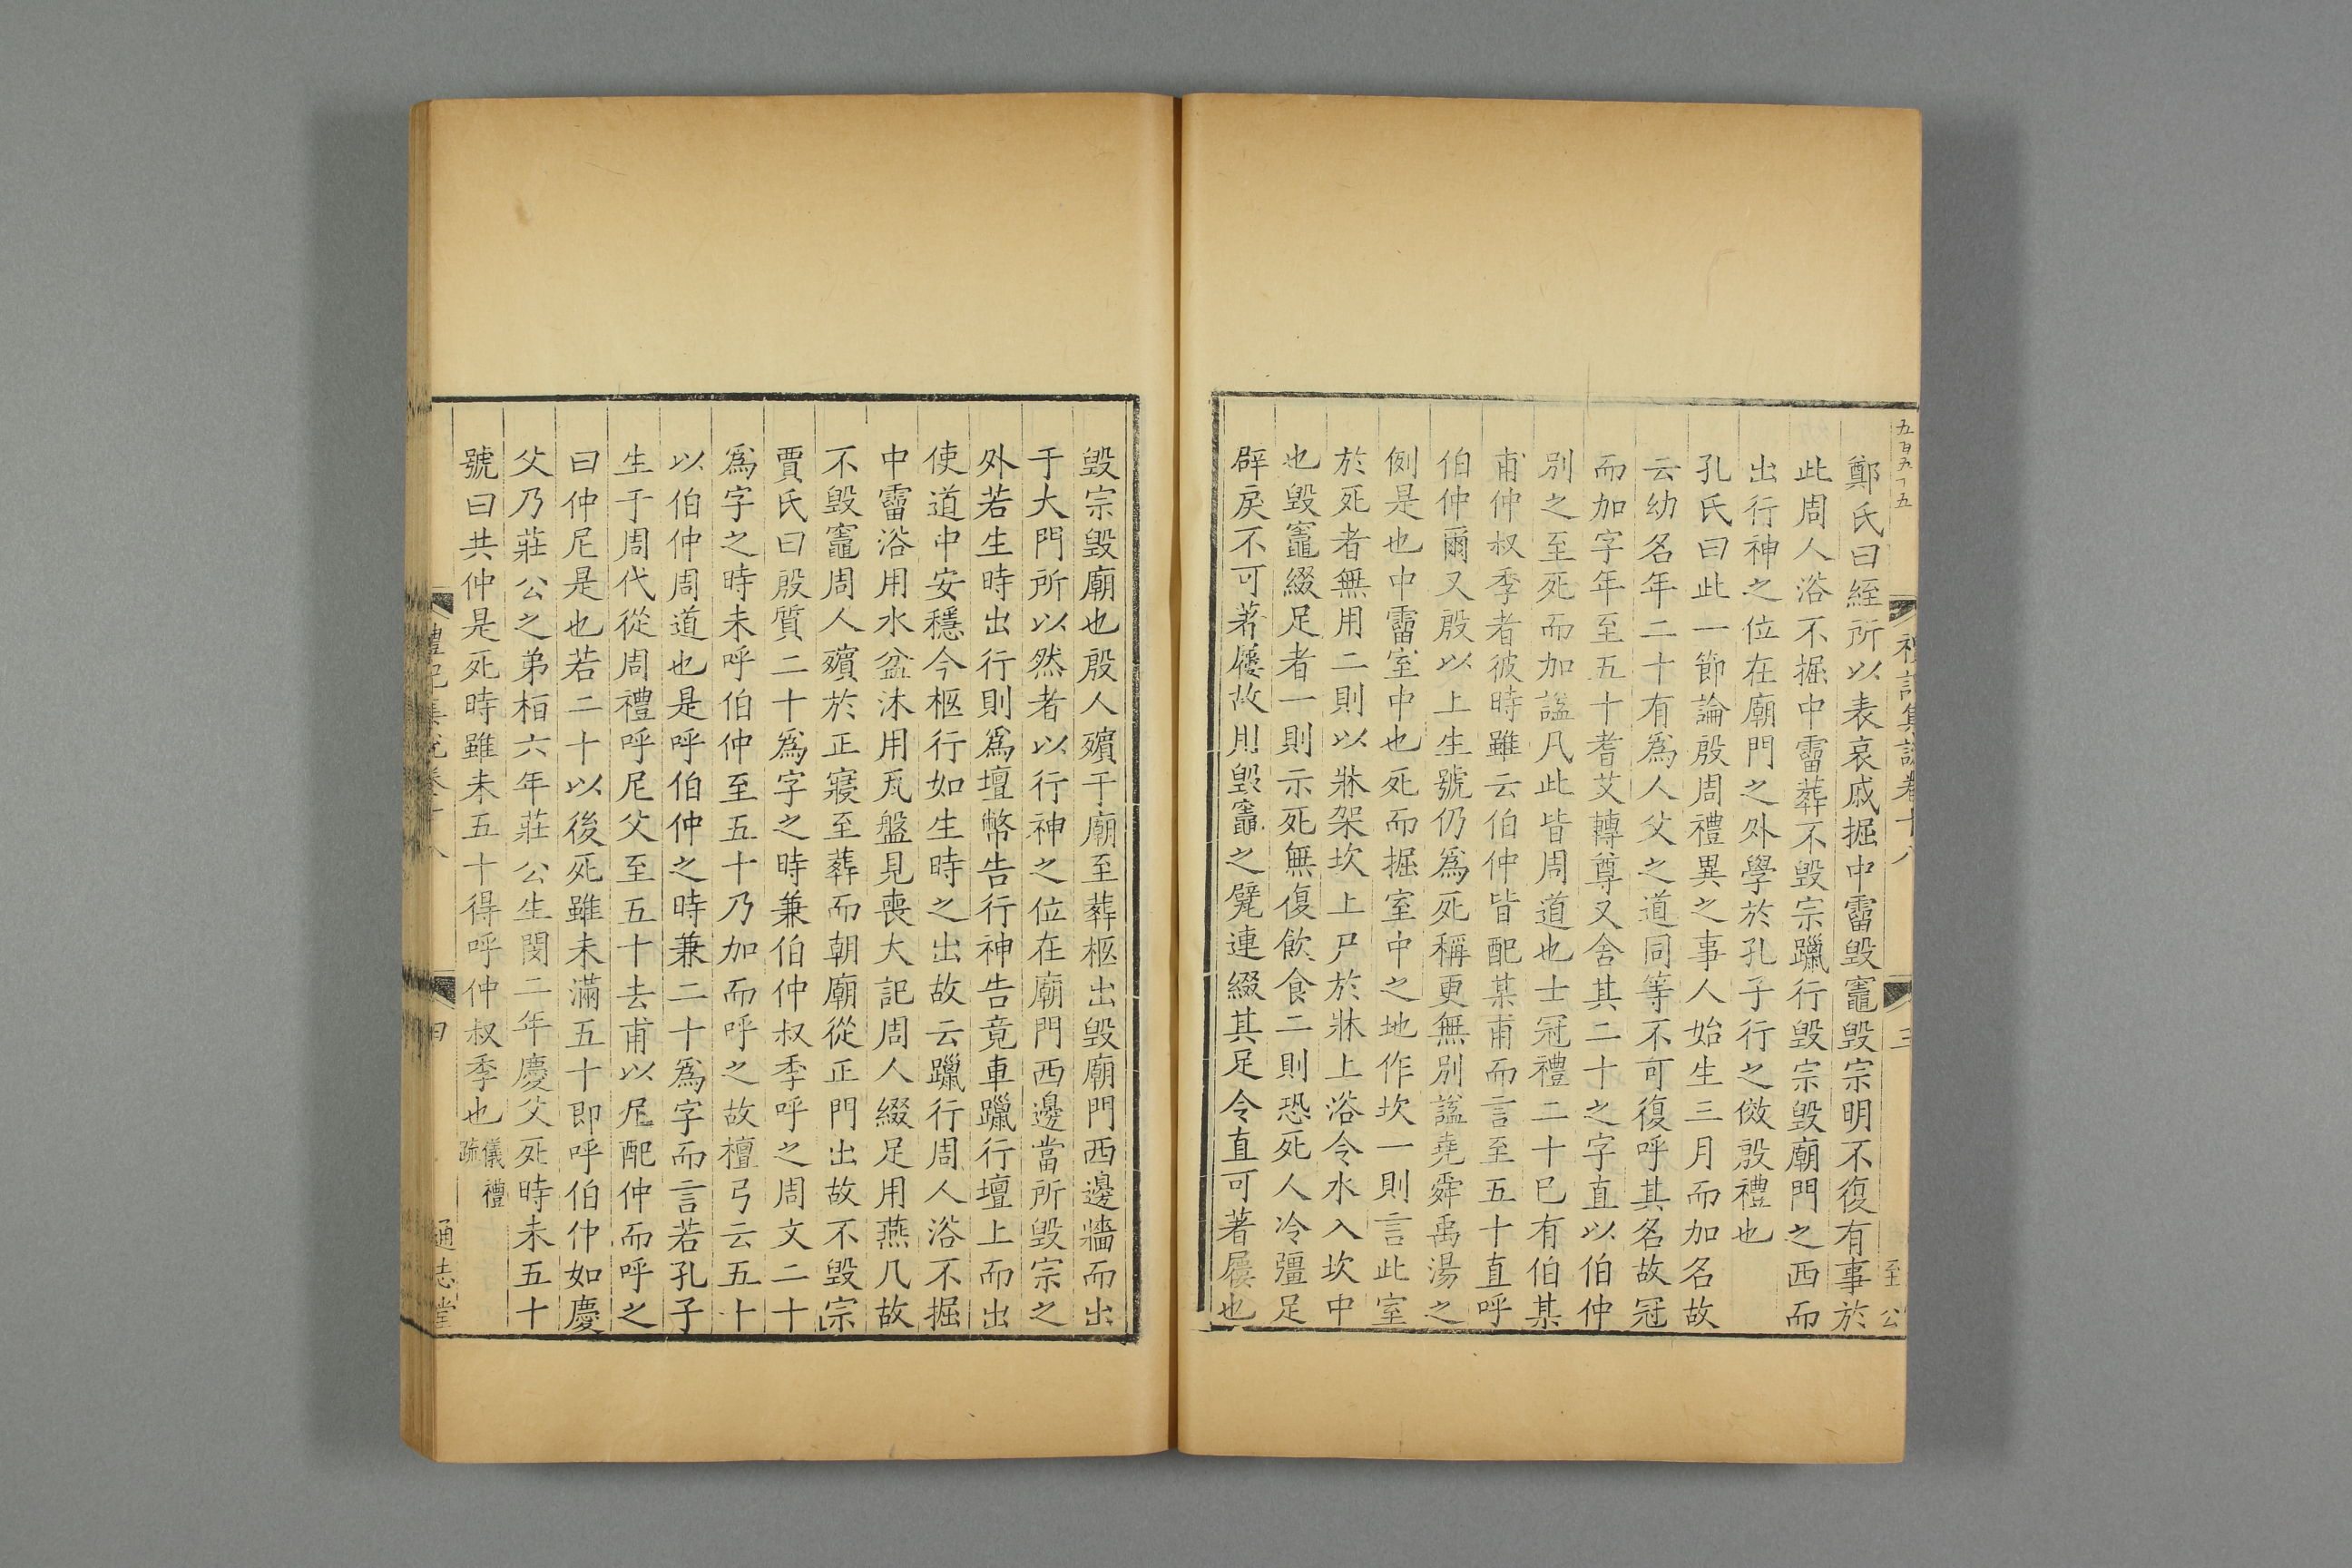 鄭氏曰絰所以表哀戚掘中霤毀竈毀宗明不復有事於
此周人浴不掘中霤葬不毀宗躐行毀宗毀廟門之西而
出行神之位在廟門之外學於孔子行之傚殷禮也
孔氏曰此一節論殷周禮異之事人始生三月而加名故
云幼名年二十有爲人父之道同等不可復呼其名故冠
而加字年至五十耆艾轉尊又舍其二十之字直以伯仲
別之至死而加謚凡此皆周道也士冠禮二十已有伯某
甫仲叔季者彼時雖云伯仲皆配某甫而言至五十直呼
伯仲爾又殷以上生號仍爲死稱更無別謚堯舜禹湯之
例是也中霤室中也死而掘室中之地作坎一則言此室
於死者無用二則以牀架坎上尸於牀上浴令水入坎中
也毀竈綴足者一則示死無復飲食二則恐死人冷彊足
辟戾不可著屨故用毀竈之甓連綴其足令直可著屨也
毀宗毀廟也殷人殯于廟至葬柩出毀廟門西邊牆而出
于大門所以然者以行神之位在廟門西邊當所毀宗之
外若生時出行則爲壇幣告行神告竟車躐行壇上而出
使道中安穩今柩行如生時之出故云躐行周人浴不掘
中霤浴用水盆沐用瓦盤見喪大記周人綴足用燕几故
不毀竈周人殯於正寢至葬而朝廟從正門出故不毀宗
賈氏曰殷質二十爲字之時兼伯仲叔季呼之周文二十
爲字之時未呼伯仲至五十乃加而呼之故檀弓云五十
以伯仲周道也是呼伯仲之時兼二十爲字而言若孔子
生于周代從周禮呼尼父至五十去甫以尼配仲而呼之
曰仲尼是也若二十以後死雖未滿五十即呼伯仲如慶
父乃莊公之弟桓六年莊公生閔二年慶父死時未五十
號曰共仲是死時雖未五十得呼仲叔季也儀禮疏
禮記集說卷十八
通志堂